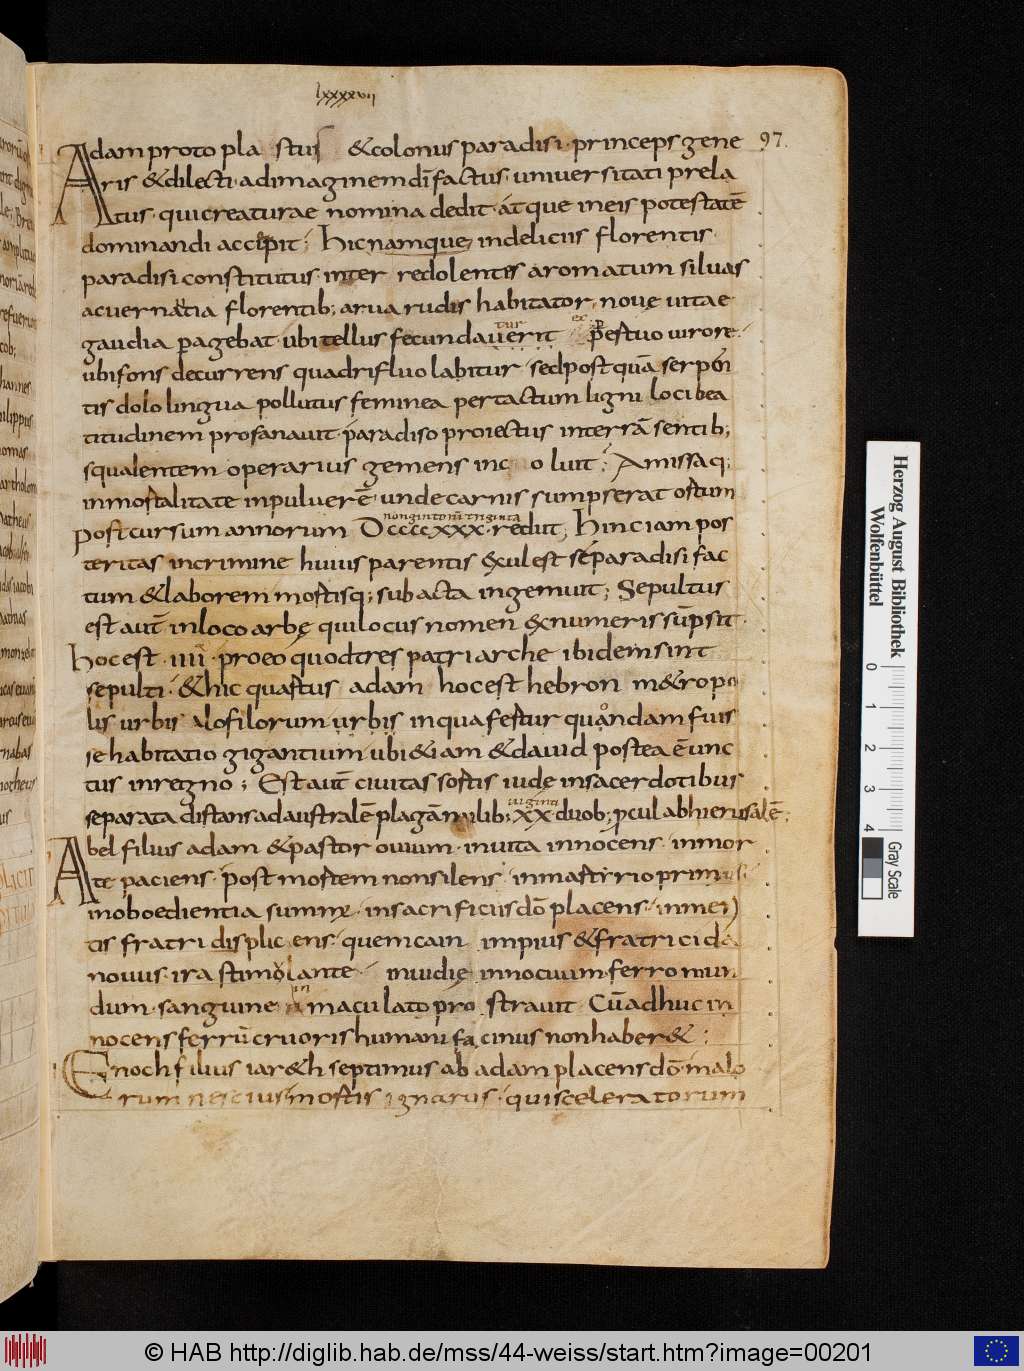 lxxxxvii
97.
Adam protopla stus & colonus paradisi · princeps gene
ris & dilecti · ad imaginem dī factus · universitati prela
tus · qui creaturae nomina dedit · atque in eis potestatē
dominandi accipit ; hic namque in deliciis florentis ·
paradisi constitutus · inter redolentes aromatum siluas
ac uernātia florentib; arua rudis habitator · nouę uitae
gaudia pagebat · ubi tellus fecunda uerit pestuo uirore ·
tur ex
ubi fons decurrens quadrifluo labitur · sed post quā serpen
tis dolo lingua pollutus feminea per tactum ligni loci bea
titudinem profanauit · paradiso proiectus in terrā sentib;
squalentem operarius gemens inc o luit ; Amissaq;
inmortalitate in puluerē · unde carnis sumpserat ostum
post cursum annorum DCCCCXXX · rediit ; hinc iam pos
nongintorū triginta
teritas in crimine huius parentis exul est se paradisi fac
tum & laborem mortisq; subacta ingemuit ; Sepultus
est aut in loco arbę qui locus nomen ex numeris sūpsit ·
hoc est · iiii · pro eo quod tres patriarche ibidem sint
sepulti · & hic quartus adam hoc est hebron m&ropo
lis urbis alofilorum urbis in qua fertur quondam fuis
se habitatio gigantium ubi & iam & dauid postea ē unc
tus in regno ; Est aut ciuitas sortis iudę in sacerdotibus
separata distans ad australē plagā milib; XX duob; pcul ab hierusalē;
uiginti
Abel filius adam & pastor ouium · in uita innocens · in mor
te paciens · post mortem non silens · in martyrio primus
in oboedientia summę · in sacrificiis dō placens · in men
tis fratri displic ens · quem cain impius & fratricida
nouus · ira stimolante · inuidię innocuum · ferro mun
dum · sanguine in maculato prostrauit · Cū adhuc in
nocens ferrū cruoris humani facinus non haber& ;
Enoch filius iar&h septimus ab adam placens dō · malo
rum nescius mortis ignarus · qui sceleratorum
Herzog August Bibliothek
Wolfenbüttel
0 1 2 3 4
Gray Scale
© HAB http://diglib.hab.de/mss/44-weiss/start.htm?image=00201